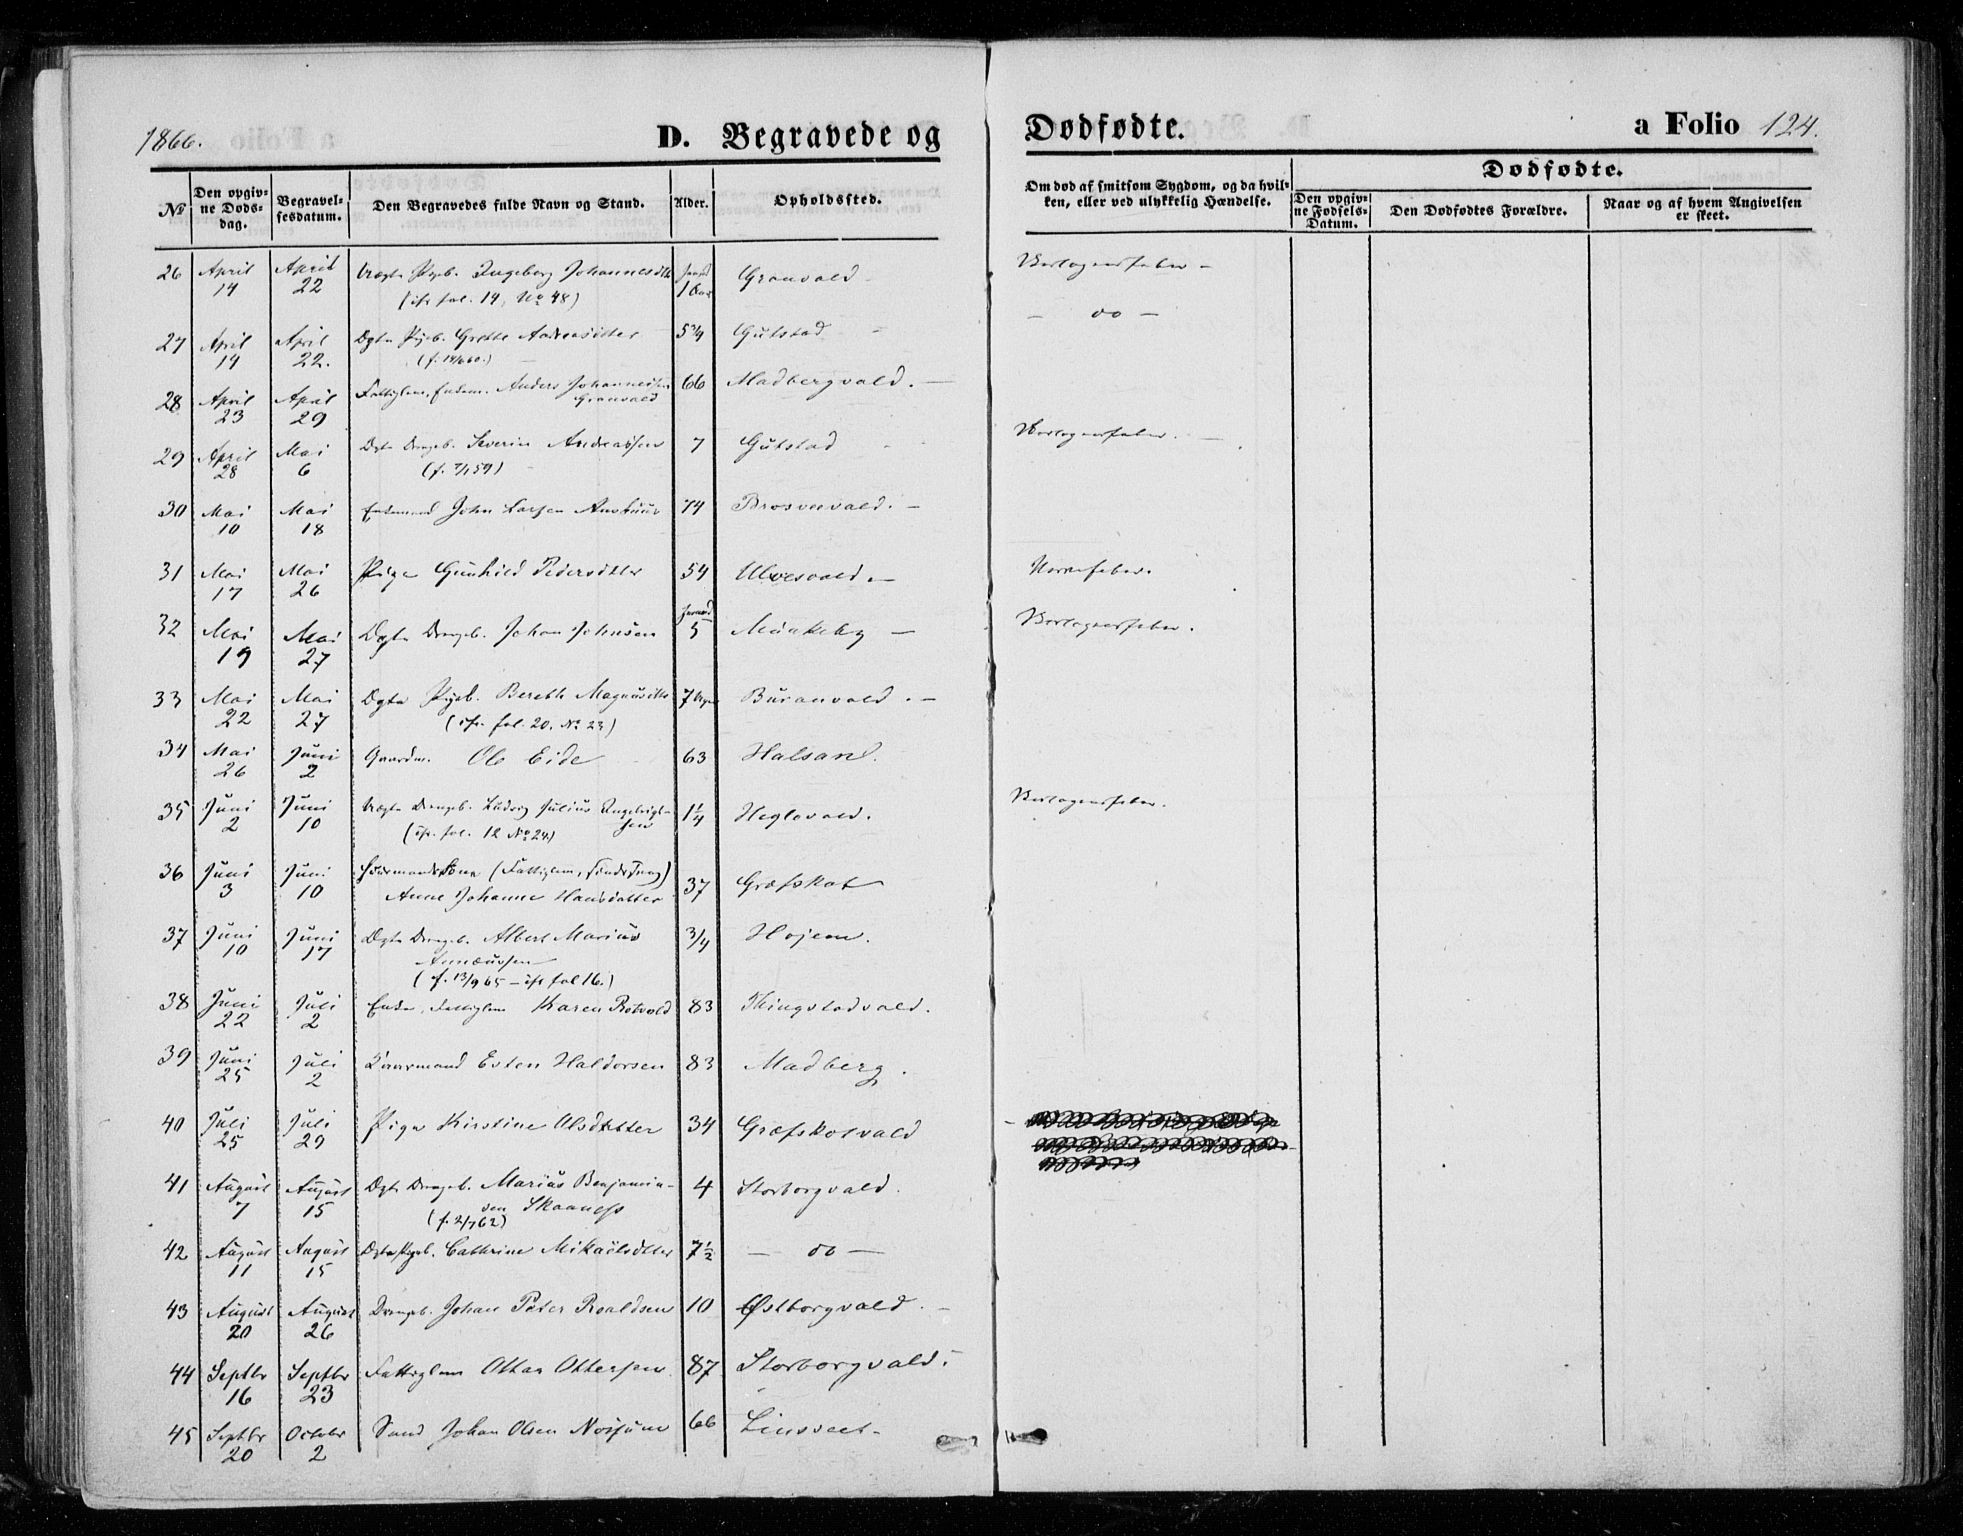 1866.
D. Begravede og Dødfødte.
a Folio 124.
№ | Den opgivne Døds-dag. | Begravelsesdatum. | Den Begravedes fulde Navn og Stand. | Alder. | Opholdssted. | Om død af smitsom Sygdom, og da hvilken, eller ved ulykkelig Hændelse. | Dødfødte. | Den opgivne Fødsels-Datum. | Den Dødfødtes Forældre. | Naar og af hvem Angivelsen er skeet.
26 April 14 April 22 Pigeb. Ingeborg Johannesdtr 1 Aar Granvald
(cfr fol. 14, No 48)
27 April 14 April 22. Dgtn Pigeb. Grethe Andreasdtter 5 3/4 Gütstad - do -
(f. 14/6 60.)
28 April 23 April 29 Fattiglem, Enkem. Anders Johannessen Granvald 66 Madbergvald.
29 April 28 Mai 6 Dgtn Drengeb. Severin Andreassen 7 Gütstad
(f. 7/1 59)
30 Mai 10 Mai 18 Enkemand John Larsen 74 Brosvevald.
31 Mai 17 Mai 26 Pige Gunhild Pedersdtter 54 Ulvesvald. Nervefeber.
32 Mai 19 Mai 27 Dgtn Drengeb. Johan Johnsen 5 Münkeby
33 Mai 22 Mai 27 Dgtn Pigeb. Bereth Magnusdtr 7 Uger Buranvald.
(cfr. fol. 20. No 23)
34 Mai 26 Juni 2 Gaardm. Ole Eide 63 Halsan.
35 Juni 2 Juni 10 Drengeb. Ludvig Julius Ingebrigtsen 1 1/4 Heglevald.
(cfr. fol. 12 No 24.)
36 Juni 3 Juni 10 (Fattiglem,
Anne Johanne Hansdatter 37 Græfskot
37 Juni 10 Juni 17 Dgtn Drengeb. Albert Marius 3/4 Hojem.
Annæussen
(f. 13/9 65 - cfr fol 16.)
38 Juni 22 Juli 2 Enke, Fattiglem Karen Rotvold 83 Thingstadvald.
39 Juni 25 Juli 2 Kaarmand Esten Haldorsen 83 Madberg.
40 Juli 25 Juli 29 Pige Kirstine Olsdatter 34 Græfskotvald
41 August 7 August 15 Dgtn Drengeb. Marius Benjamin- 4 Storborgvald.
sen Skaaness
(f. 2/7 62)
42 August 11 August 15 Dgtn Pigeb. Cathrine Mikaelsdtter 7 1/2 - do -
43 August 20 August 26 Drengeb. Johan Peter Roaldsen 10 Østborgvald.
44 Septbr 16 Septbr 23 Fattiglem Ottar Ottersen 87 Storborgvald.
45 Septbr 20 Octobr 2 Johan Olsen 66